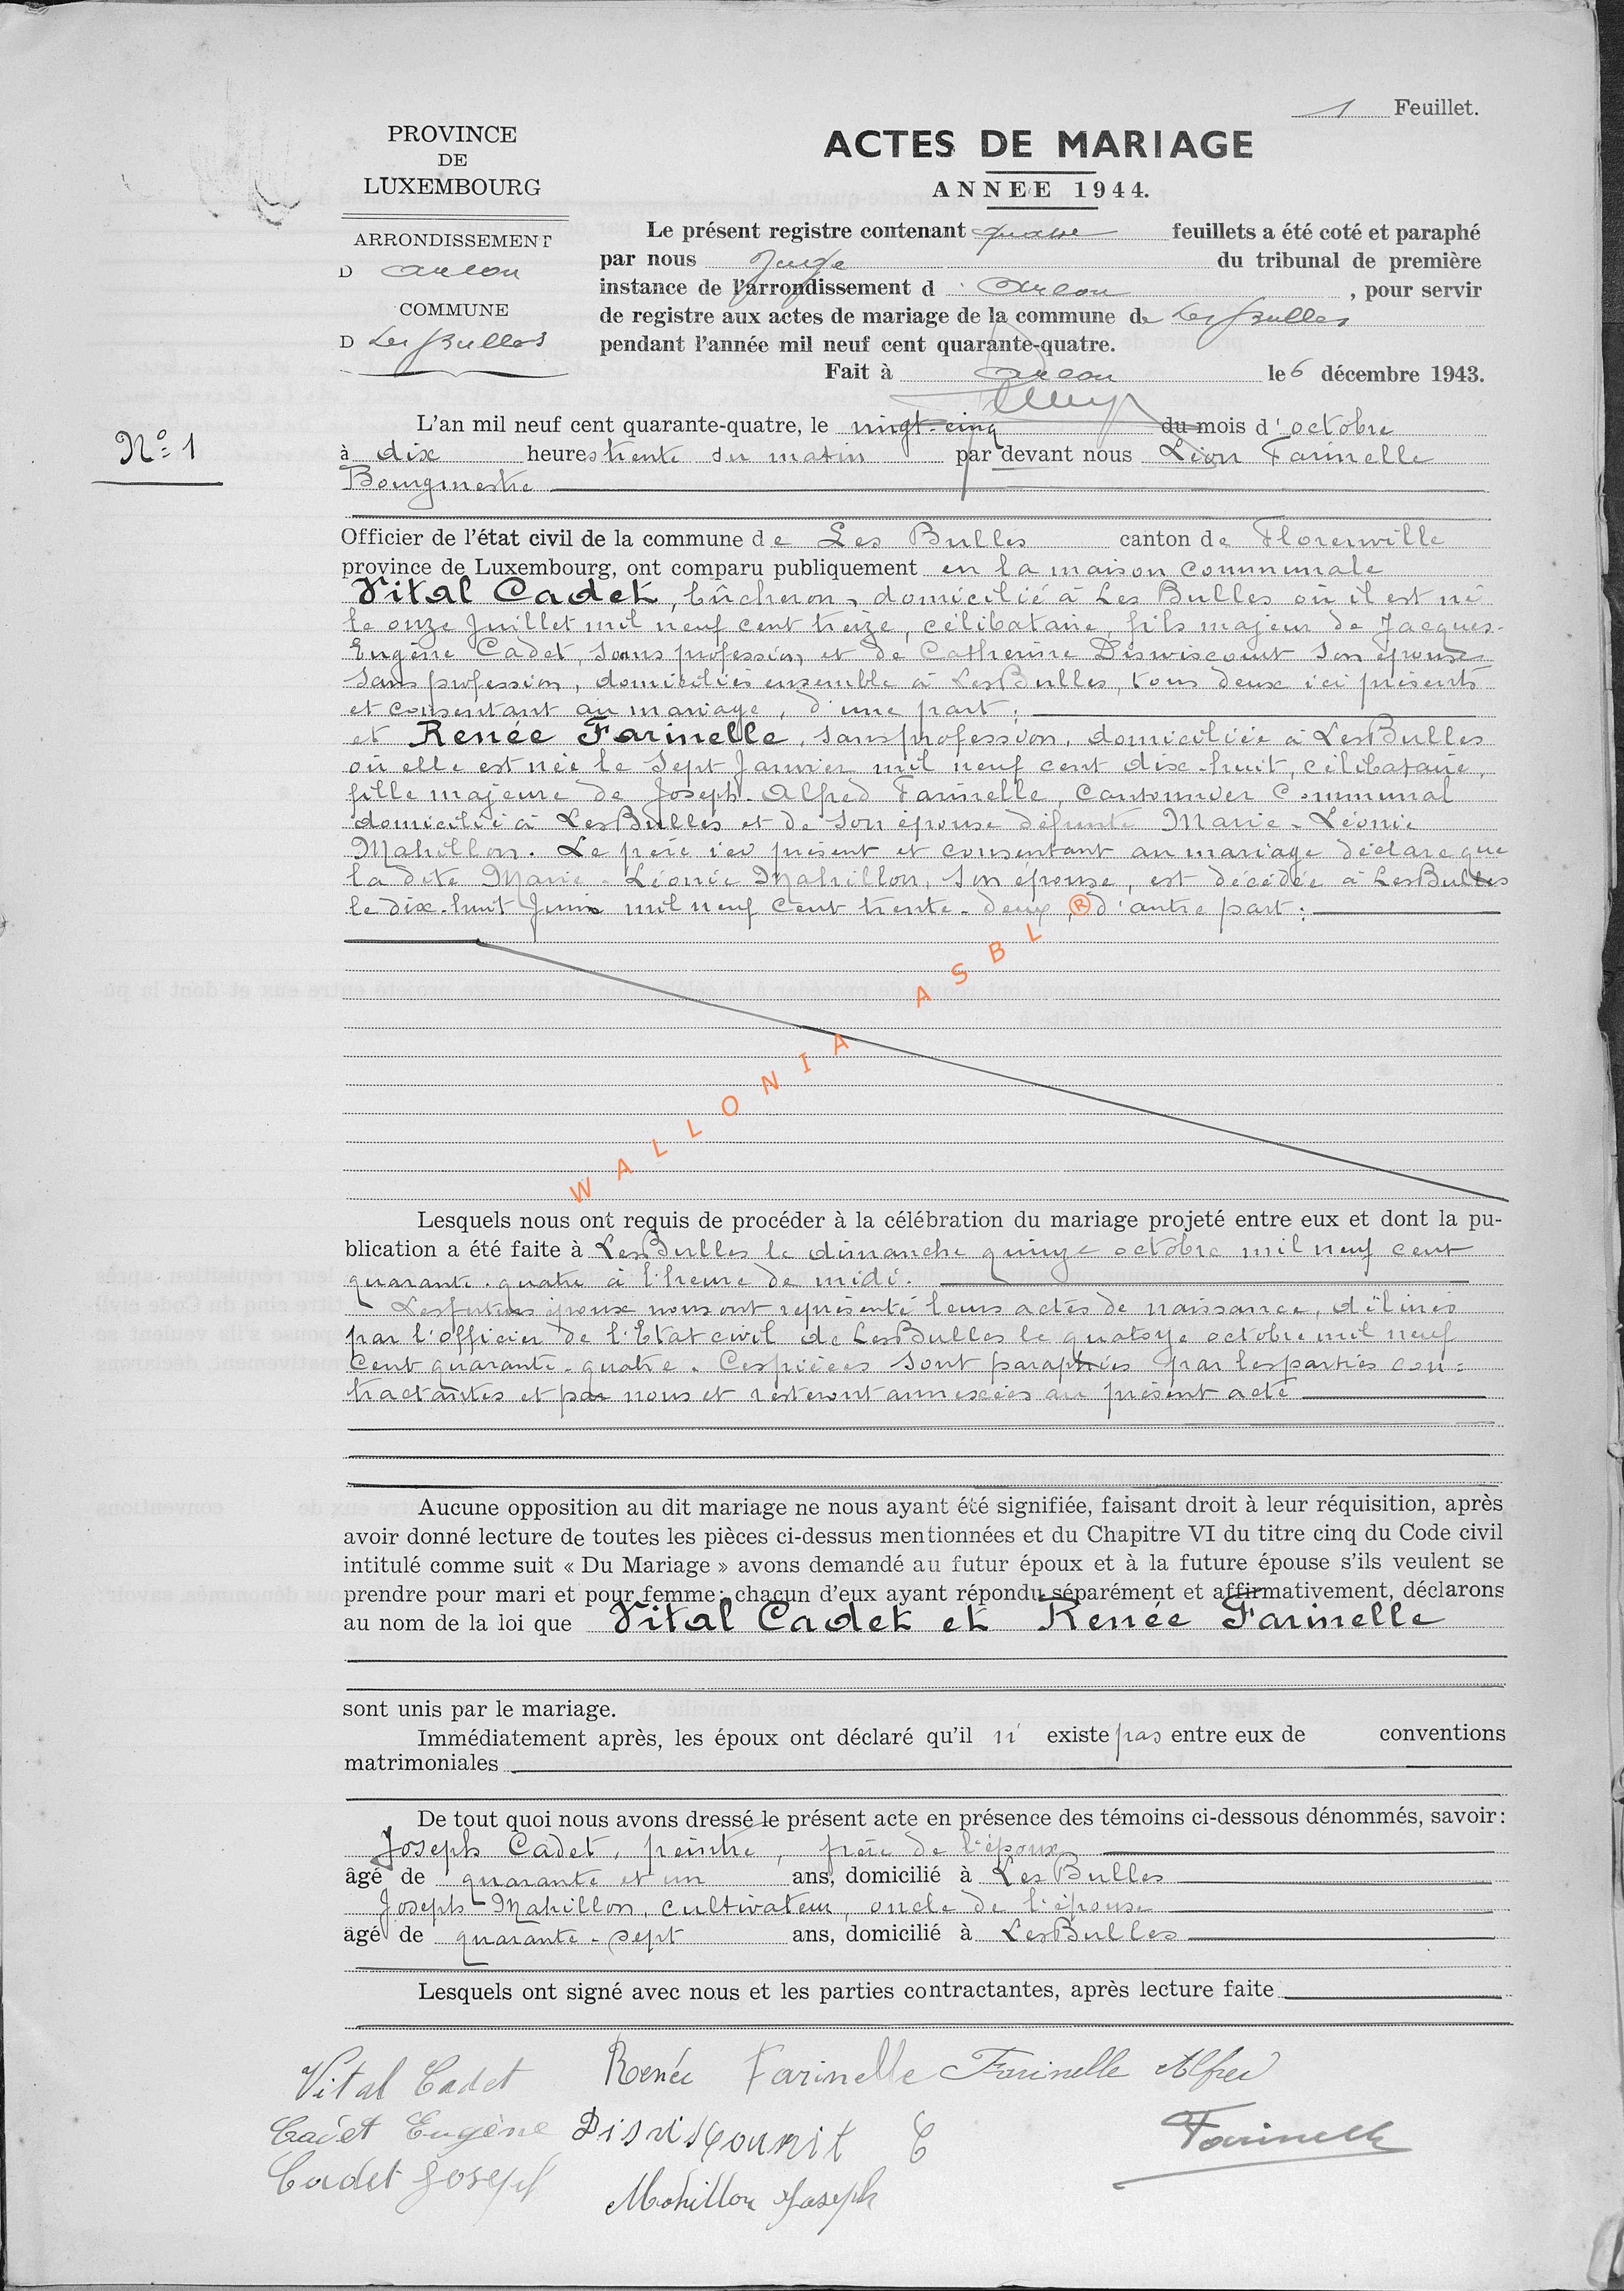 1 Feuillet.
PROVINCE
DE
LUXEMBOURG
ARRONDISSEMENT
D Arlon
COMMUNE
D Les Bulles
ACTES DE MARIAGE
ANNEE 1944.
Le présent registre contenant quatre feuillets a été coté et paraphé
par nous Juge du tribunal de première
instance de l'arrondissement d Arlon, pour servir
de registre aux actes de mariage de la commune de Les Bulles
pendant l'année mil neuf cent quarante-quatre.
Fait à Arlon le 6 décembre 1943.
N° 1
L'an mil neuf cent quarante-quatre, le vingt-cinq du mois d'octobre
à dix heures trente du matin par devant nous Léon Farinelle
Bourgmestre
Officier de l'état civil de la commune de Les Bulles canton de Florenville
province de Luxembourg, ont comparu publiquement en la maison communale
Vital Cadet, bûcheron, domicilié à Les Bulles où il est né
le onze Juillet mil neuf cent treize, célibataire, fils majeur de Jacques-
Eugène Cadet, sans profession et de Catherine Diswiscourt son épouse
sans profession, domiciliés ensemble à Les Bulles, tous deux ici présents
et consentant au mariage, d'une part;
et Renée Farinelle, sans profession, domiciliée à Les Bulles
où elle est née le sept Janvier mil neuf cent dix-huit, célibataire,
fille majeure de Joseph-Alfred Farinelle, Cantonnier Communal
domicilié à Les Bulles et de son épouse défunte Marie-Léonie
Mahillon. Le père ici présent et consentant au mariage déclare que
la dite Marie-Léonie Mahillon, son épouse, est décédée à Les Bulles
le dix-huit Juin mil neuf cent trente-deux, d'autre part;
WALLONIA ASBL ®
Lesquels nous ont requis de procéder à la célébration du mariage projeté entre eux et dont la pu-
blication a été faite à Les Bulles le dimanche quinze octobre mil neuf cent
quarante-quatre à l'heure de midi.
Les futurs époux nous ont représenté leurs actes de naissance, délivrés
par l'officier de l'Etat civil de Les Bulles le quatorze octobre mil neuf
cent quarante-quatre. Ces pièces sont paraphées par les parties con=
tractantes et par nous et resteront annexées au présent acte
Aucune opposition au dit mariage ne nous ayant été signifiée, faisant droit à leur réquisition, après
avoir donné lecture de toutes les pièces ci-dessus mentionnées et du Chapitre VI du titre cinq du Code civil
intitulé comme suit « Du Mariage » avons demandé au futur époux et à la future épouse s'ils veulent se
prendre pour mari et pour femme; chacun d'eux ayant répondu séparément et affirmativement, déclarons
au nom de la loi que Vital Cadet et Renée Farinelle
sont unis par le mariage.
Immédiatement après, les époux ont déclaré qu'il n' existe pas entre eux de conventions
matrimoniales
De tout quoi nous avons dressé le présent acte en présence des témoins ci-dessous dénommés, savoir:
Joseph Cadet, peintre, frère de l'époux
âgé de quarante et un ans, domicilié à Les Bulles
Joseph Mahillon, cultivateur, oncle de l'épouse
âgé de quarante-sept ans, domicilié à Les Bulles
Lesquels ont signé avec nous et les parties contractantes, après lecture faite
Vital Cadet Renée Farinelle Farinelle Alfred
Cadet Eugène Disviscourit C Farinelle
Cadet Joseph Mahillon Joseph